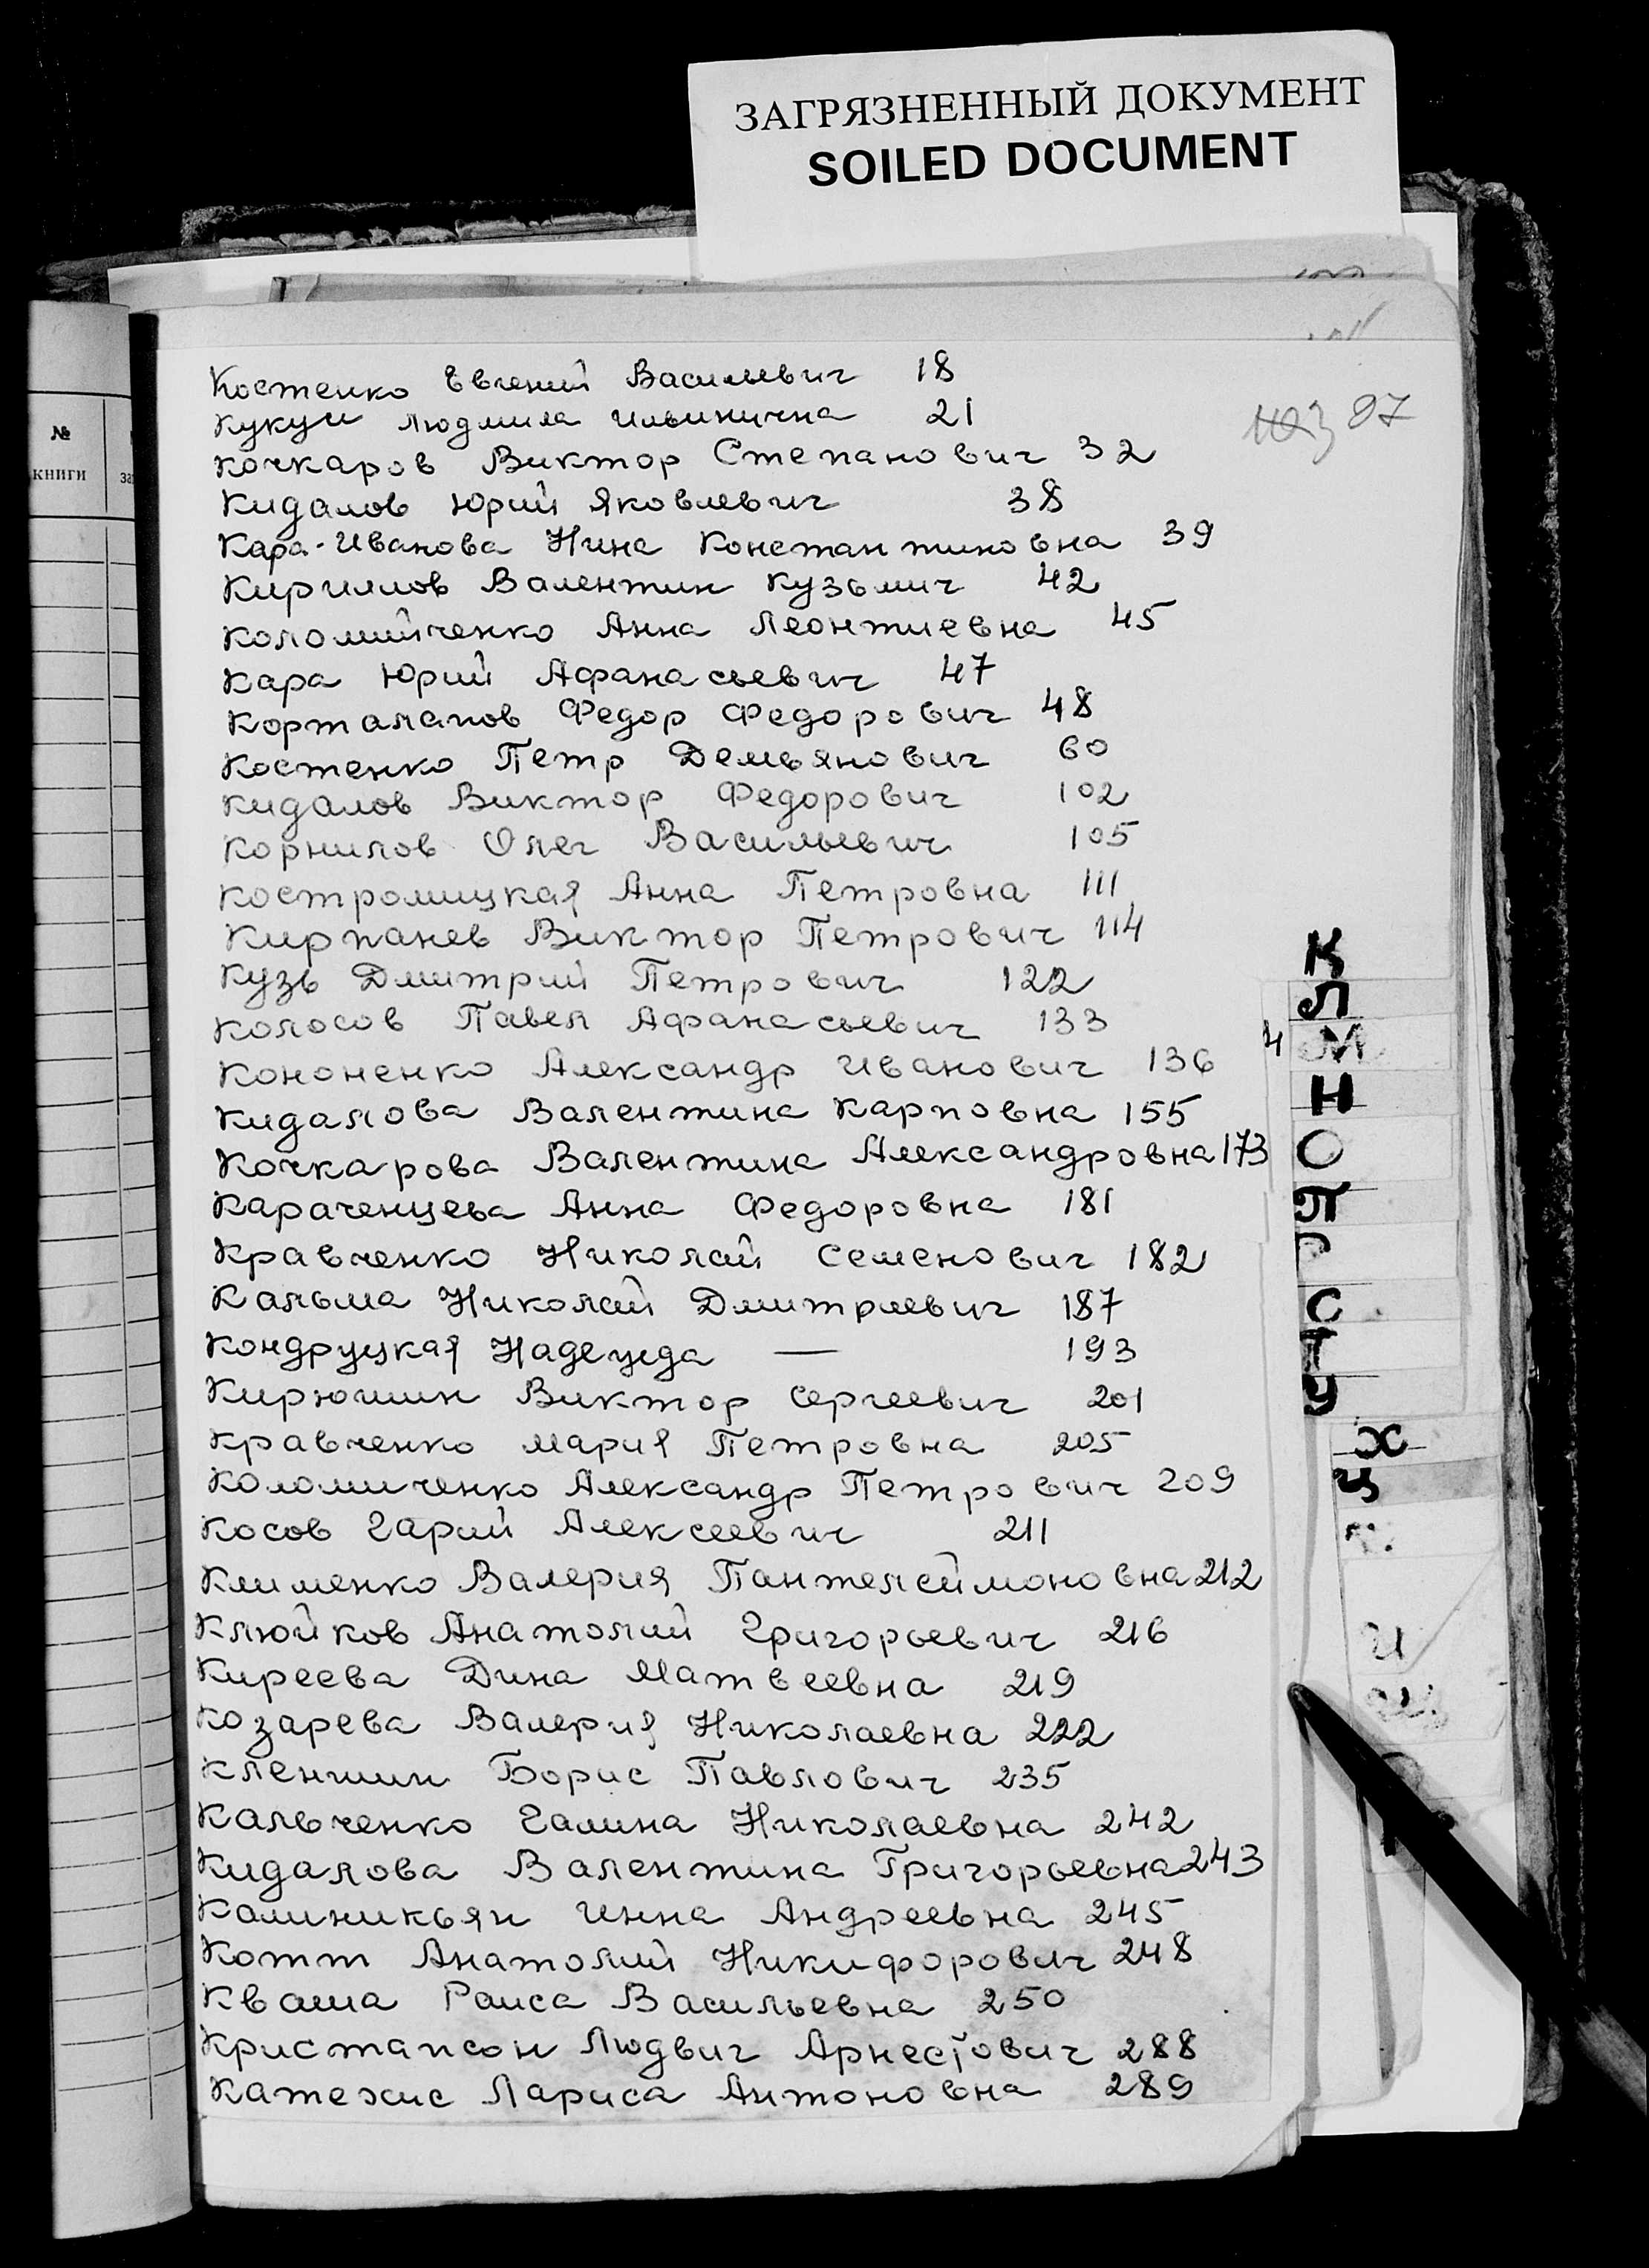 ЗАГРЯЗНЕННЫЙ ДОКУМЕНТ
SOILED DOCUMENT
97
№
книги
Костенко Евгений Васильевич 18
Кукуи Людмила Ильинична 21
Кочкаров Виктор Степанович 32
Кидалов Юрий Яковлевич 38
Кара-Иванова Нина Константиновна 39
Кириллов Валентин Кузьмич 42
Коломийченко Анна Леонтиевна 45
Кара Юрий Афанасьевич 47
Корталапов Федор Федорович 48
Костенко Петр Демьянович 60
Кидалов Виктор Федорович 102
Корнилов Олег Васильевич 105
Костромицкая Анна Петровна 111
Кирпанев Виктор Петрович 114
Кузь Дмитрий Петрович 122
Колосов Павел Афанасьевич 133
Кононенко Александр Иванович 136
Кидалова Валентина Карповна 155
Кочкарова Валентина Александровна 173
Караченцева Анна Федоровна 181
Кравченко Николай Семенович 182
Кальма Николай Дмитриевич 187
Кондруцкая Надежда — 193
Кирюшин Виктор Сергеевич 201
Кравченко Мария Петровна 205
Коломиченко Александр Петрович 209
Косов Гарий Алексеевич 211
Клименко Валерия Пантелеймоновна 212
Клюйков Анатолий Григорьевич 216
Киреева Дина Матвеевна 219
Козарева Валерия Николаевна 222
Кленшин Борис Павлович 235
Кальченко Галина Николаевна 242
Кидалова Валентина Григорьевна 243
Калиникьян Инна Андреевна 245
Котт Анатолий Никифорович 248
Кваша Раиса Васильевна 250
Кристапсон Людвиг Арнестович 288
Катехис Лариса Антоновна 289
К
Л
М
Н
О
П
Р
С
Т
У
Х